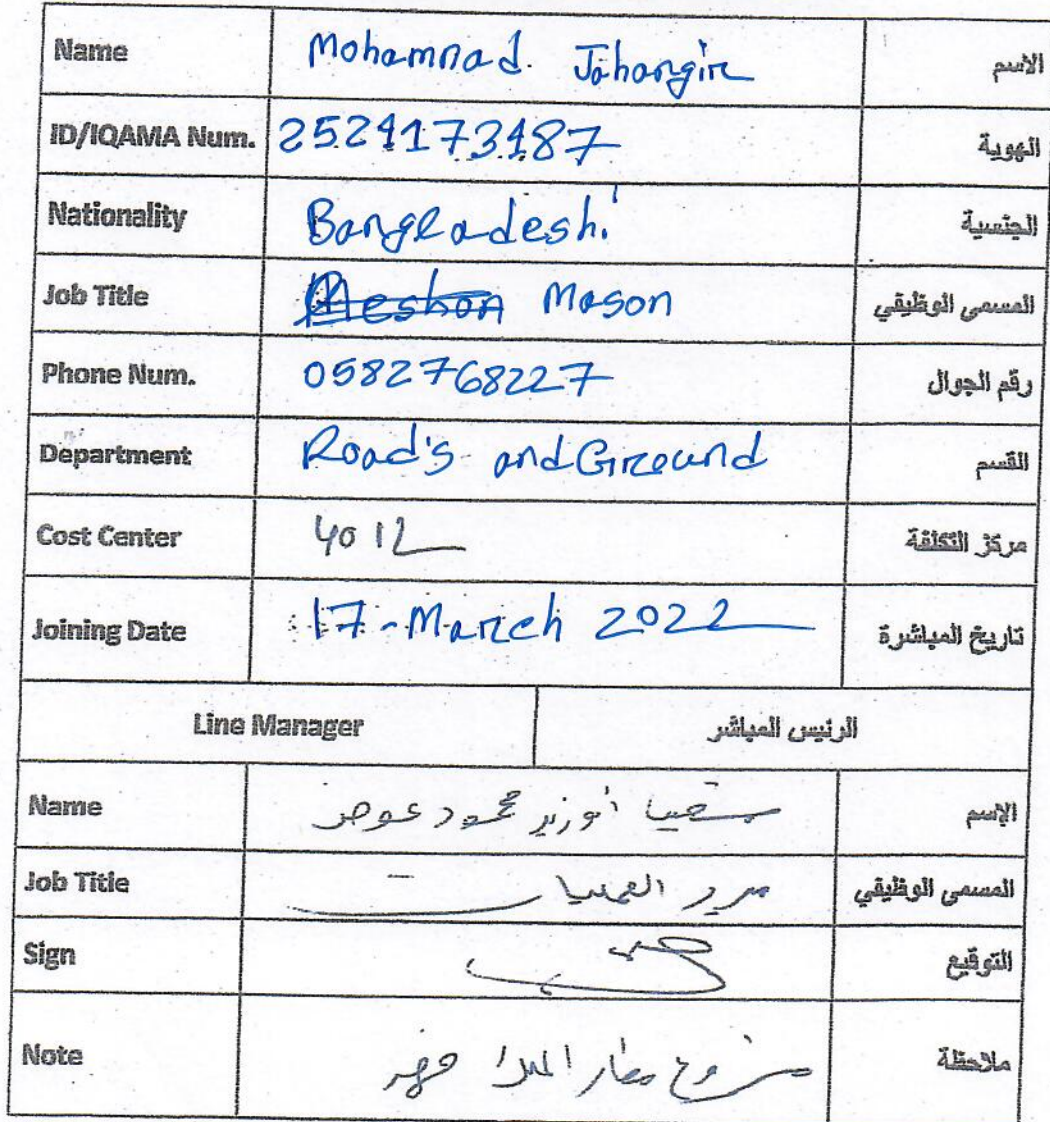 Name Mohamnad. Jahangir الاسم
ID/IQAMA Num. 2524173487 الهوية
Nationality Bangladeshi الجنسية
Job Title Meshon Mason المسمى الوظيفي
Phone Num. 0582768227 رقم الجوال
Department Road's and Ground القسم
Cost Center 4012 مركز التكلفة
Joining Date 17-March 2022 تاريخ المباشرة
Line Manager الرئيس المباشر
Name محمود الإسم
Job Title مدير العمليات المسمى الوظيفي
Sign التوقيع
Note مطار ملاحظة